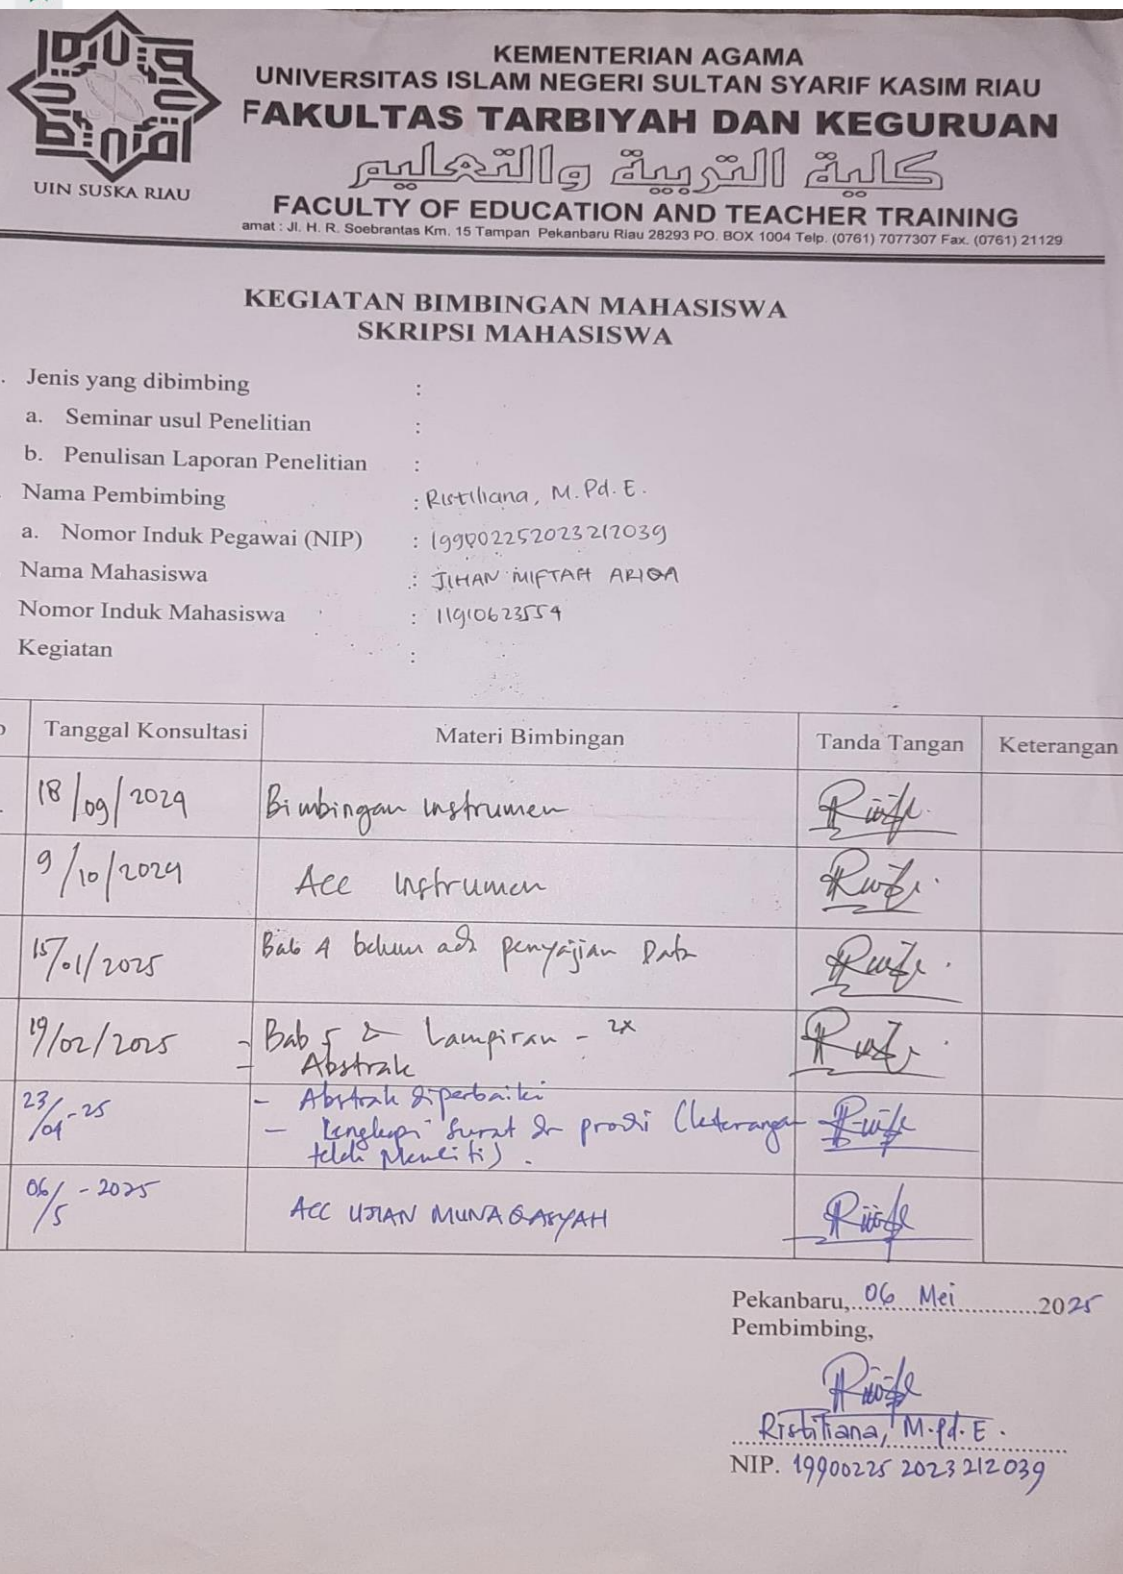 UIN SUSKA RIAU
KEMENTERIAN AGAMA
UNIVERSITAS ISLAM NEGERI SULTAN SYARIF KASIM RIAU
FAKULTAS TARBIYAH DAN KEGURUAN
كلية التربية والتعليم
FACULTY OF EDUCATION AND TEACHER TRAINING
amat : Jl. H. R. Soebrantas Km. 15 Tampan Pekanbaru Riau 28293 PO. BOX 1004 Telp. (0761) 7077307 Fax. (0761) 21129
KEGIATAN BIMBINGAN MAHASISWA
SKRIPSI MAHASISWA
. Jenis yang dibimbing :
a. Seminar usul Penelitian :
b. Penulisan Laporan Penelitian :
Nama Pembimbing : Ristiliana, M.Pd.E.
a. Nomor Induk Pegawai (NIP) : 199002252023212039
Nama Mahasiswa : JIHAN MIFTAH ARIQA
Nomor Induk Mahasiswa : 11910623554
Kegiatan :
Tanggal Konsultasi Materi Bimbingan Tanda Tangan Keterangan
18/09/2024 Bimbingan instrumen
9/10/2024 Acc Instrumen
15/01/2025 Bab 4 belum ada penyajian Data
19/02/2025 - Bab 5 & Lampiran - 2x
- Abstrak
23/04-25 - Abstrak diperbaiki
- Lengkapi surat dr prodi (keterangan
telah Meneliti).
06/5-2025 ACC UJIAN MUNAQASYAH
Pekanbaru, 06 Mei 2025
Pembimbing,
Ristiliana, M.Pd.E.
NIP. 19900225 2023212039